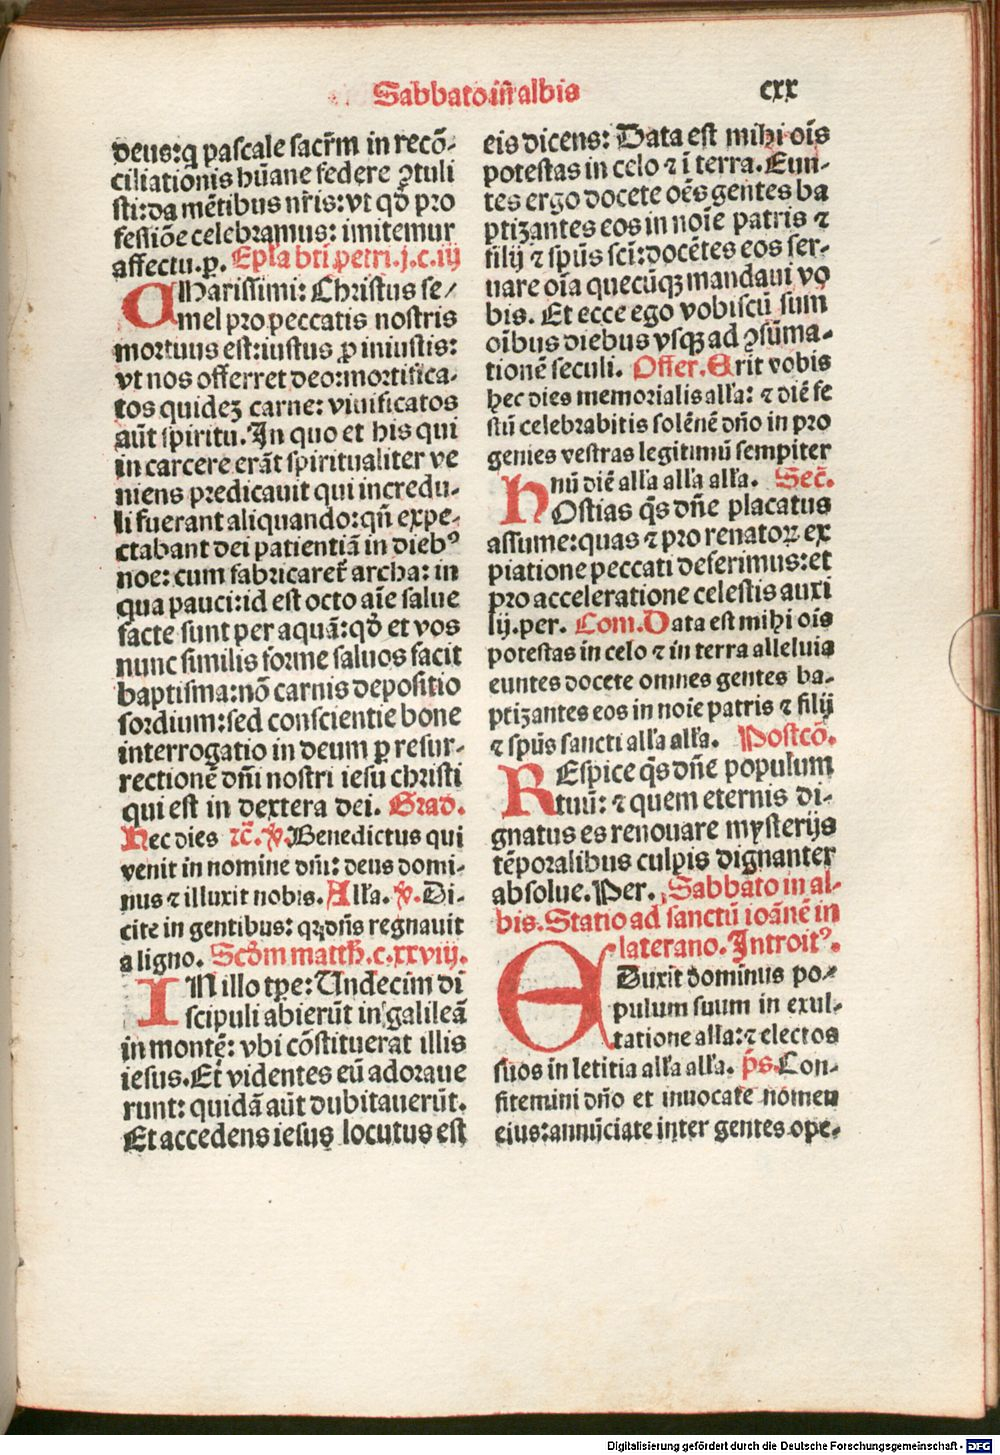 Sabbato in albis
cxx
deus:q pascale sacr̄m in recō-
ciliationis hūane federe ꝯtuli
sti:da mētibus nr̄is:vt qď pro
fessiōe celebramus: imitemur
affectu.p. Epl̄a btī petri.j.c.iij
CHarissimi: Christus se/
mel pro peccatis nostris
mortuus est:iustus ꝑ iniustis:
vt nos offerret deo:mortifica-
tos quidez carne: viuificatos
aūt spiritu.In quo et his qui
in carcere erāt spiritualiter ve
niens predicauit qui incredu-
li fuerant aliquando:qn̄ expe-
ctabant dei patientiā in dieb⁹
noe: cum fabricaret̄ archa: in
qua pauci:id est octo aīe salue
facte sunt per aquā:qď et vos
nunc similis forme saluos facit
baptisma:nō carnis depositio
sordium:sed conscientie bone
interrogatio in deum ꝑ resur-
rectionē dn̄i nostri iesu christi
qui est in dextera dei. Grad.
Hec dies rē. ꝟ. Benedictus qui
venit in nomine dn̄i: deus domi-
nus ⁊ illuxit nobis. All'a. ꝟ. Di-
cite in gentibus: qꝛ dn̄s regnauit
a ligno. Scďm matth̄.c.xxviij.
IN illo tp̄e: Undecim di
scipuli abierūt in galileā
in montē: vbi cōstituerat illis
iesus.Et videntes eū adoraue
runt: quidā aūt dubitauerūt.
Et accedens iesus locutus est
eis dicens: Data est mihi oīs
potestas in celo ⁊ ī terra. Eun-
tes ergo docete oēs gentes ba
ptizantes eos in noīe patris ⁊
filij ⁊ spūs sci̅:docētes eos ser-
uare oīa quecūqꝫ mandaui vo
bis. Et ecce ego vobiscū sum
oībus diebus vsqꝫ ad ꝯsūma-
tionē seculi. Offer. Erit vobis
hec dies memorialis all'a: ⁊ diē fe
stū celebrabitis solēnē dn̄o in pro
genies vestras legitimū sempiter
nū diē all'a all'a all'a. Sec̄.
HOstias q̄s dn̄e placatus
assume:quas ⁊ pro renatoꝝ ex
piatione peccati deferimus:et
pro acceleratione celestis auxi
lij.per. Com. Data est mihi oīs
potestas in celo ⁊ in terra alleluia
euntes docete omnes gentes ba-
ptizantes eos in noīe patris ⁊ filij
⁊ spūs sancti all'a all'a. Postcō.
REspice q̄s dn̄e populum
tuū: ⁊ quem eternis di-
gnatus es renouare mysterijs
tēporalibus culpis dignanter
absolue. Per. Sabbato in al-
bis. Statio ad sanctū ioānē in
laterano. Introit⁹.
EDuxit dominus po-
pulum suum in exul-
tatione all'a:⁊ electos
suos in letitia all'a all'a. p̄s. Con-
fitemini dn̄o et inuocate nomen
eius:annūciate inter gentes ope-
Digitalisierung gefördert durch die Deutsche Forschungsgemeinschaft - DFG